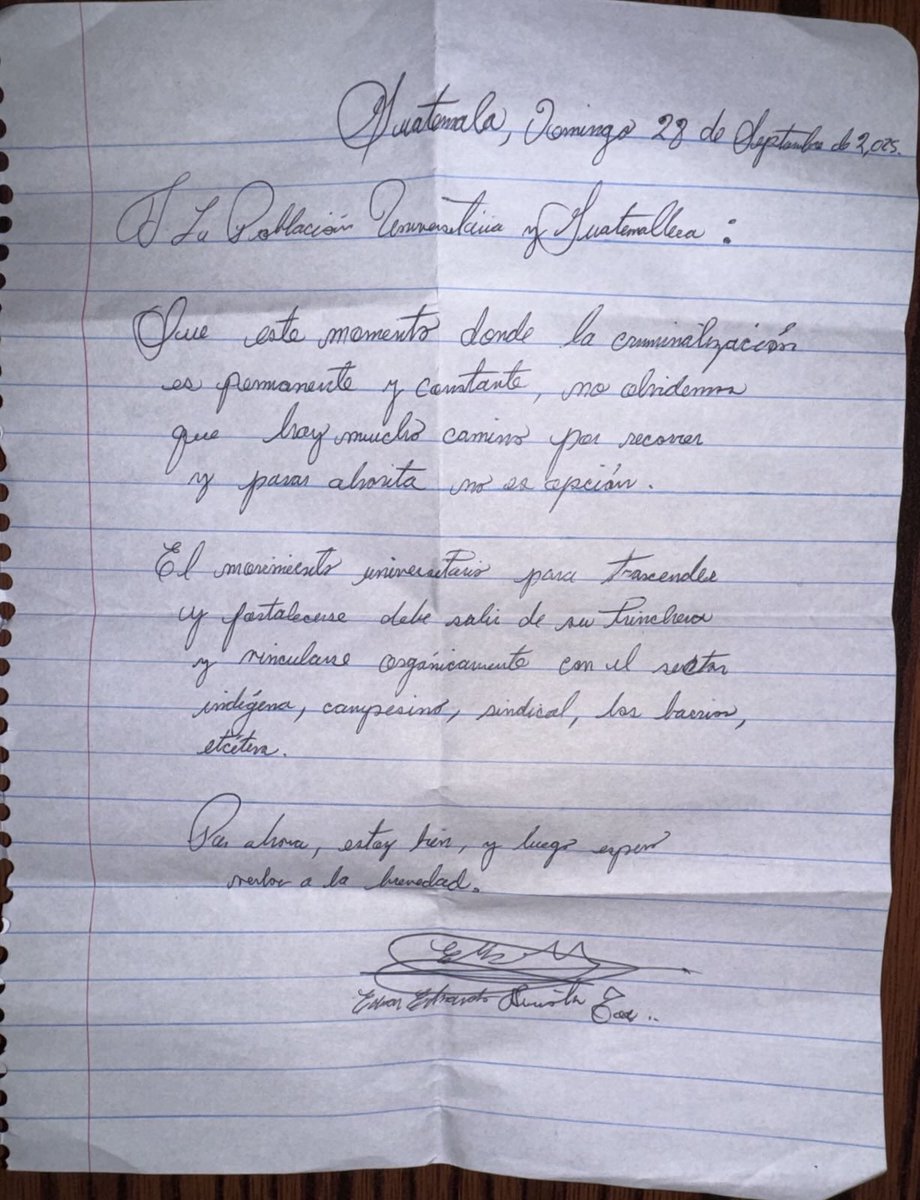 Guatemala, Domingo 28 de Septiembre de 2,025.
A La Población Universitaria y Guatemalteca :
Que este momento donde la criminalización
es permanente y constante, no olvidemos
que hay mucho camino por recorrer
y parar ahorita no es opción.
El movimiento universitario para trascender
y fortalecerse debe salir de su trinchera
y vincularse orgánicamente con el sector
indígena, campesino, sindical, los barrios,
etcétera.
Por ahora, estoy bien, y luego espero
verlos a la brevedad.